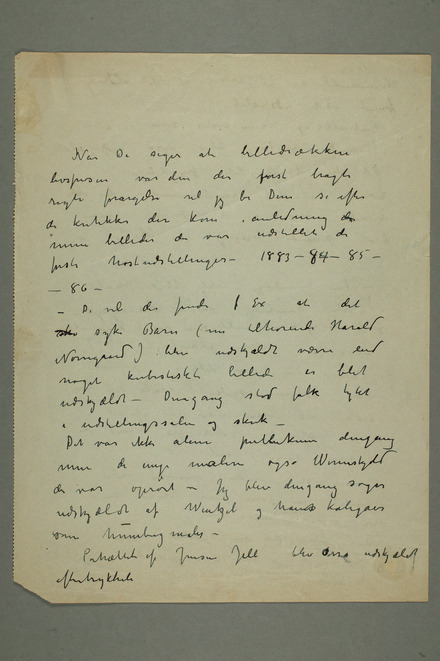 Når De siger at billedrækken
livsfrisen var den der først bragte
De vil jeg be Dem se efter
de kritikker der kom i anledning de
mine billeder der var udstillet de
første høstudstillinger – 1883 – 84 – 85 –
– 86 –
– De vil der finde f Ex at det
syke Barn (nu tilhørende Harald
Nørregaard) blev udskjældt værre end
noget kubistiskt billede er blet
udskjældt – Dengang stod folk
i udstillingssalen og –
Det var ikke alene publikum dengang
men de unge malere også Wernskjold
der var oprørt – Jeg blev dengang
udskjældt af Wentzel og hans kolegaer
som –
Portrættet af Jensen Hjell blev også udskjældt
eftertrykkeli